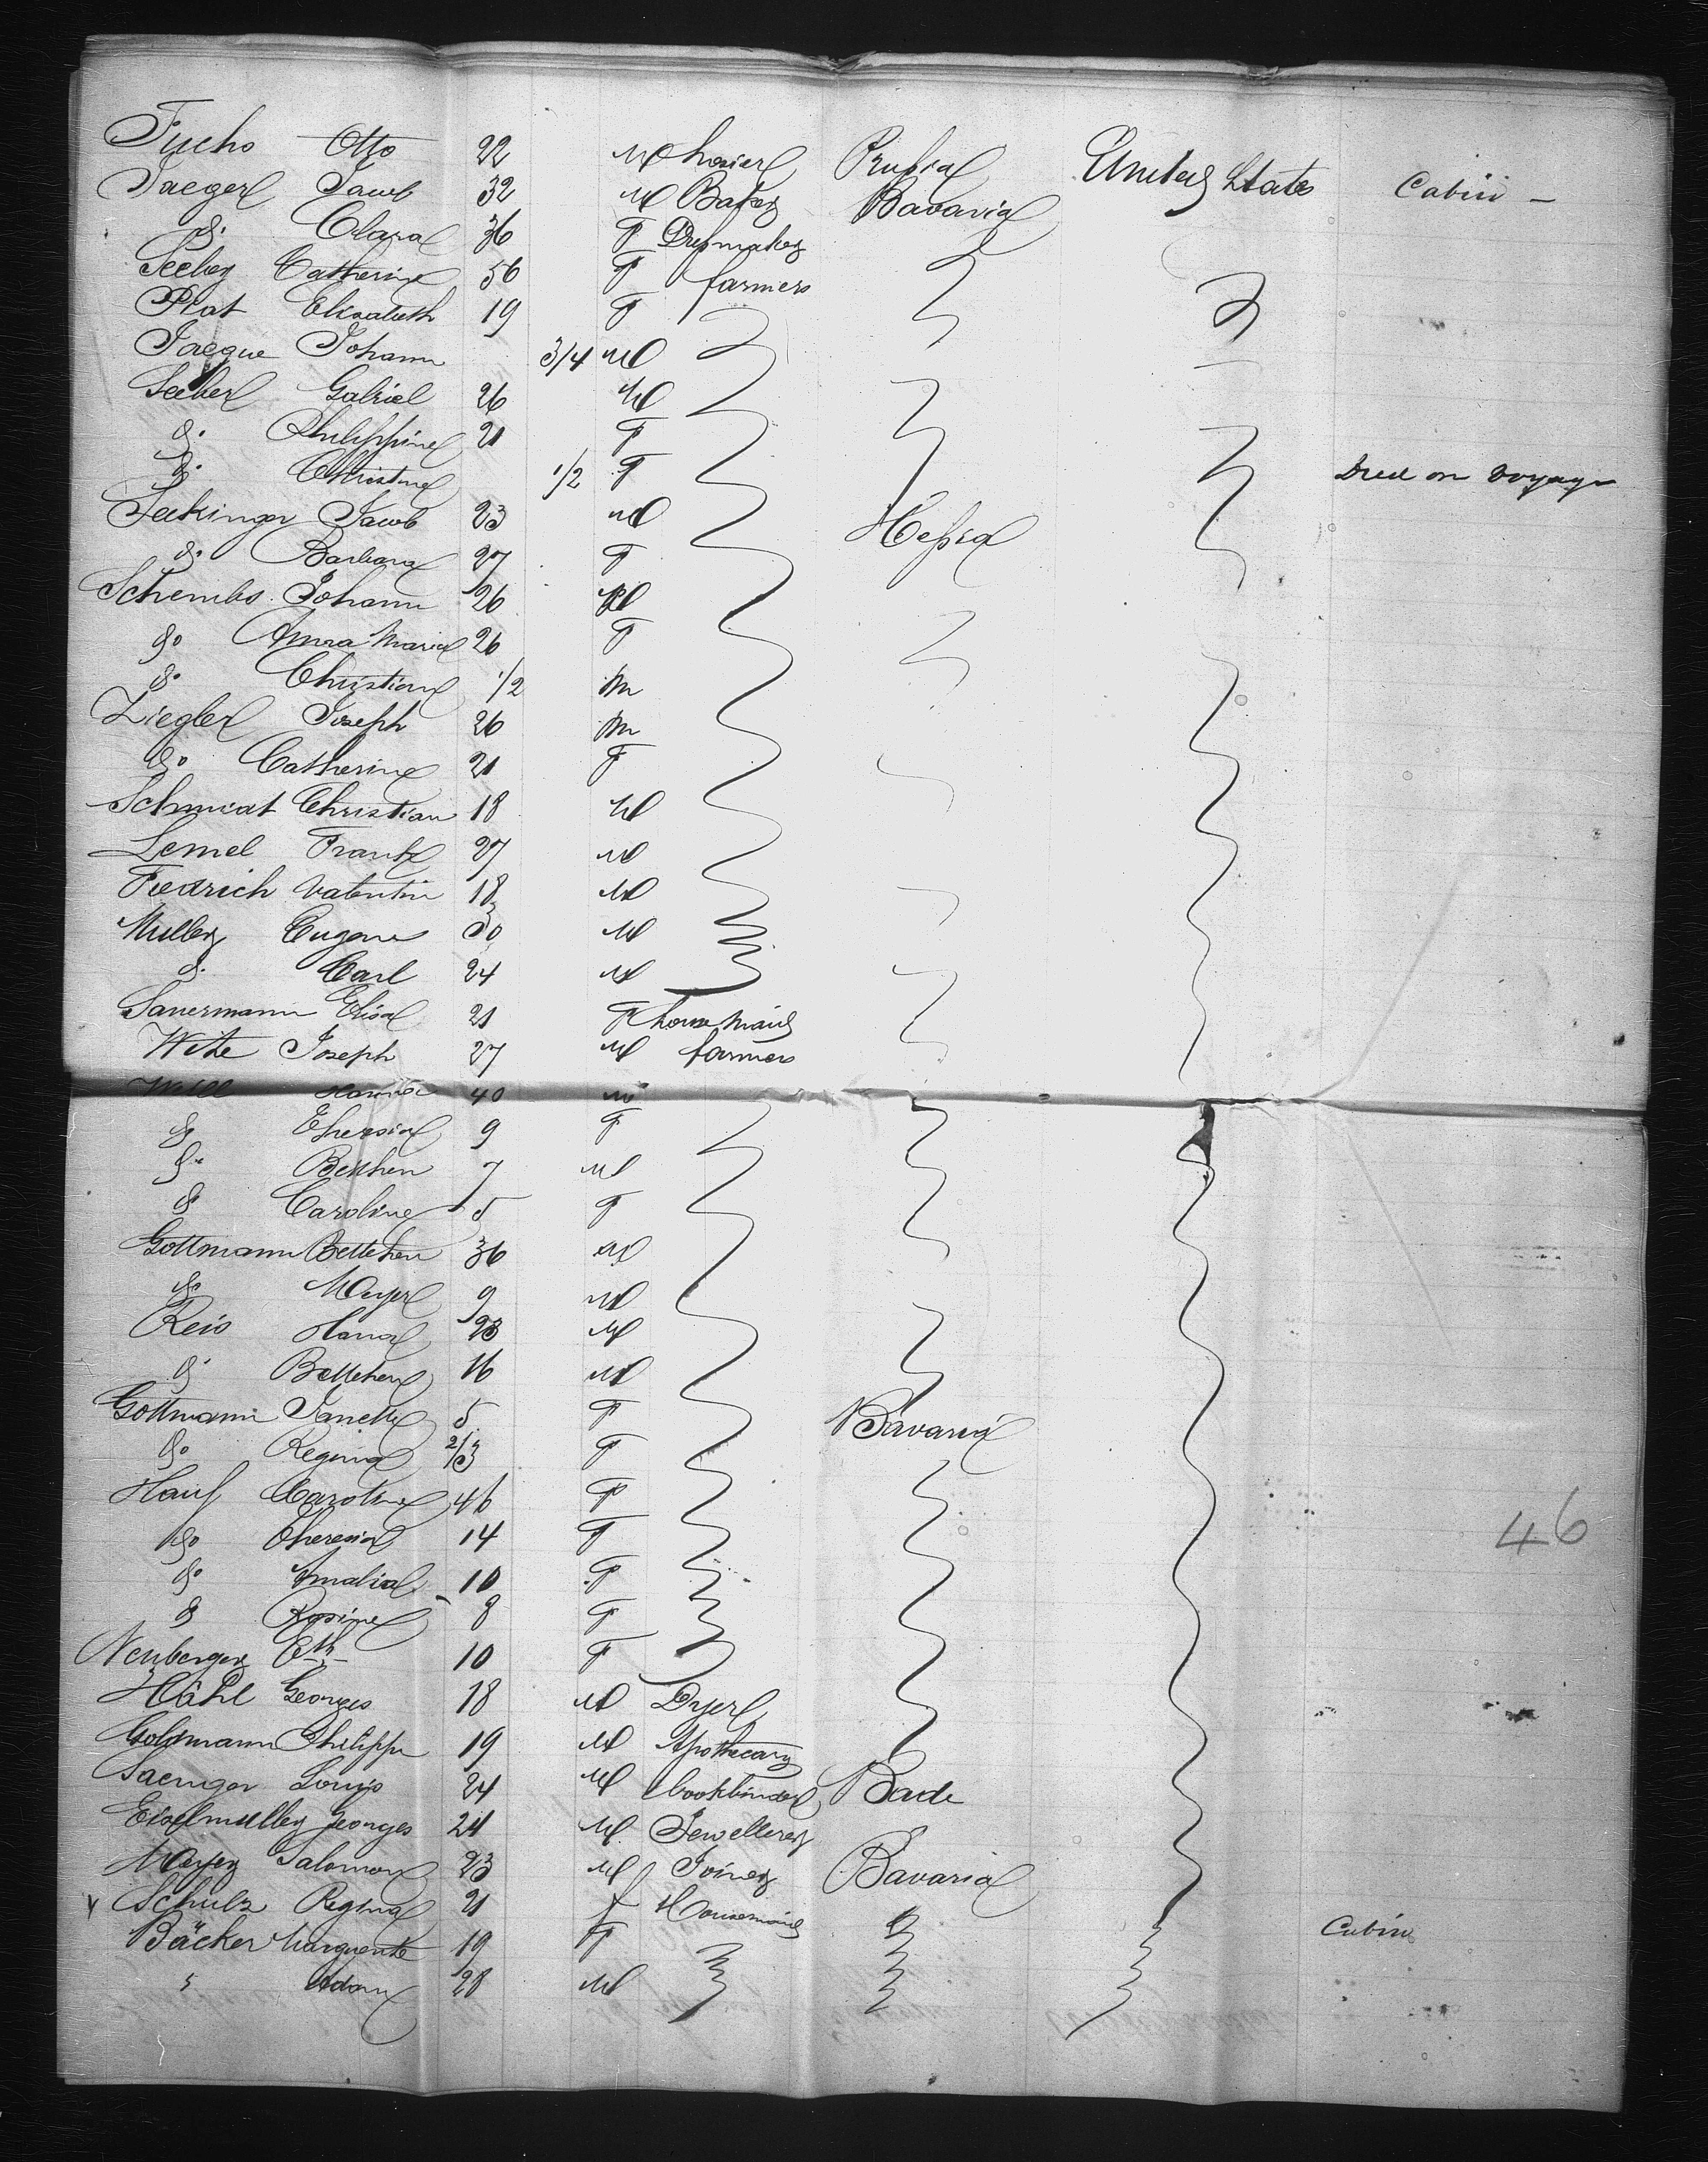 Fuchs Otto 22 M hosier Prussia United States Cabin -
Jaeger Jacob 32 M Baker Bavaria
do. Clara 36 F Dressmaker
Seeber Catherine 56 F farmers
Plat Elisabeth 19 F
Jacque Johann 3/4 M
Seeber Gabriel 26 M
do. Philippine 21 F
do. Christine 1/2 F Died on voyage
Seckinger Jacob 23 M Hessia
do. Barbara 27 F
Schembs. Johann 26 M
do Anna Maria 26 F
do Christian 1/2 m
Ziegler Joseph 26 m
do Catherine 21 F
Schmidt Christian 18 M
Lemel Frantz 27 M
Fiedrich Valentin 18 M
Muller Eugene 30 M
do. Carl 24 M
Sauermann Elisa 21 F house maid
Wite Joseph 27 M farmers
40 M
do Theresia 9 F
do 7 M
do Caroline 5 F
Gottmann Bettchen 36 M
do Mayer 9 M
Reis Hana 23 M
do Bettchen 16 M
Gottmann Janette 5 F Bavaria
do Regina 2/3 F
Hauf Caroline 46 F
do Theresia 14 F
do Amalia 10 F
do Rosine 8 F
Neuberger 10 F
Hähl Georges 18 M Dyer
Goldmann Philipp 19 M Apothecary
Saenger Louis 24 M bookbinder Bade
Eiselmuller Georges 24 M Jeweller
Mayer Salomon 23 M Joiner Bavaria
Schulz Regina 21 f Housemaid
Bäcker Marguerite 19 F Cabin
" Adam 28 M
46